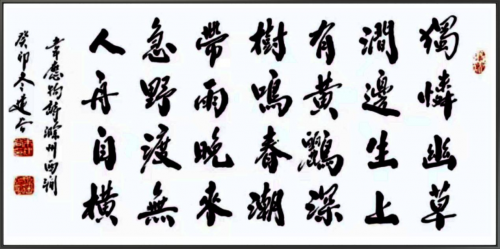 獨憐幽草
澗邊生上
有黃鸝深
樹鳴春潮
帶雨晚來
急野渡無
人舟自橫
韋應物詩滁州西澗
癸卯冬